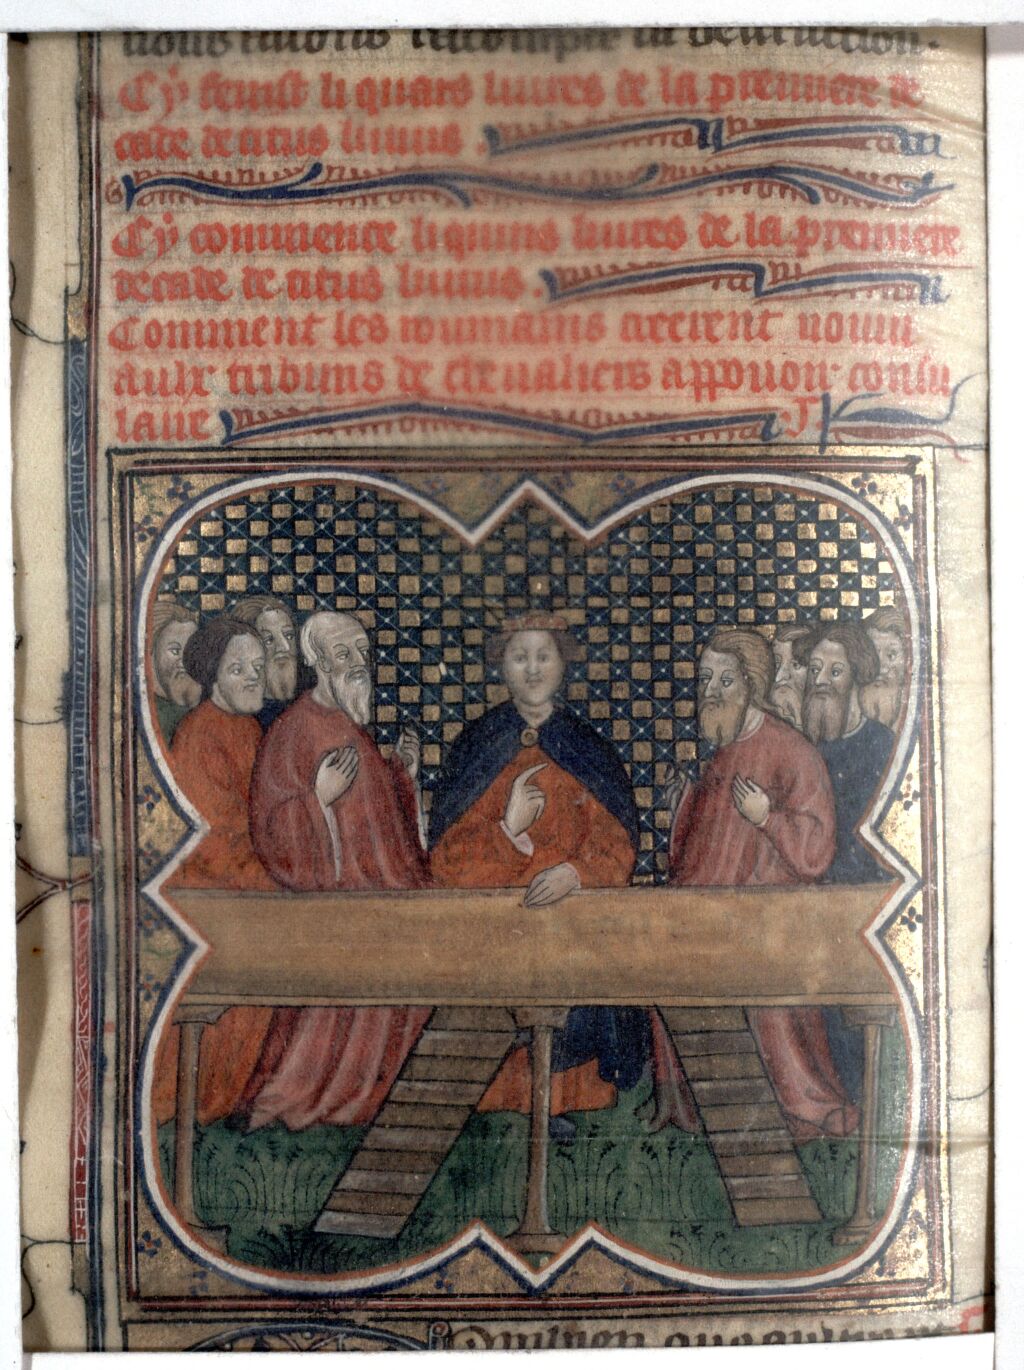 nous auons racompte la destruction.
Cy fenist li quars liures de la premiere de
cade de titus liuius.
Cy commence li quins liures de la premiere
decade de titus liuius.
Comment les roumains creerent nouui
aulx tribuns de cheualiers a pouoir consu
laire